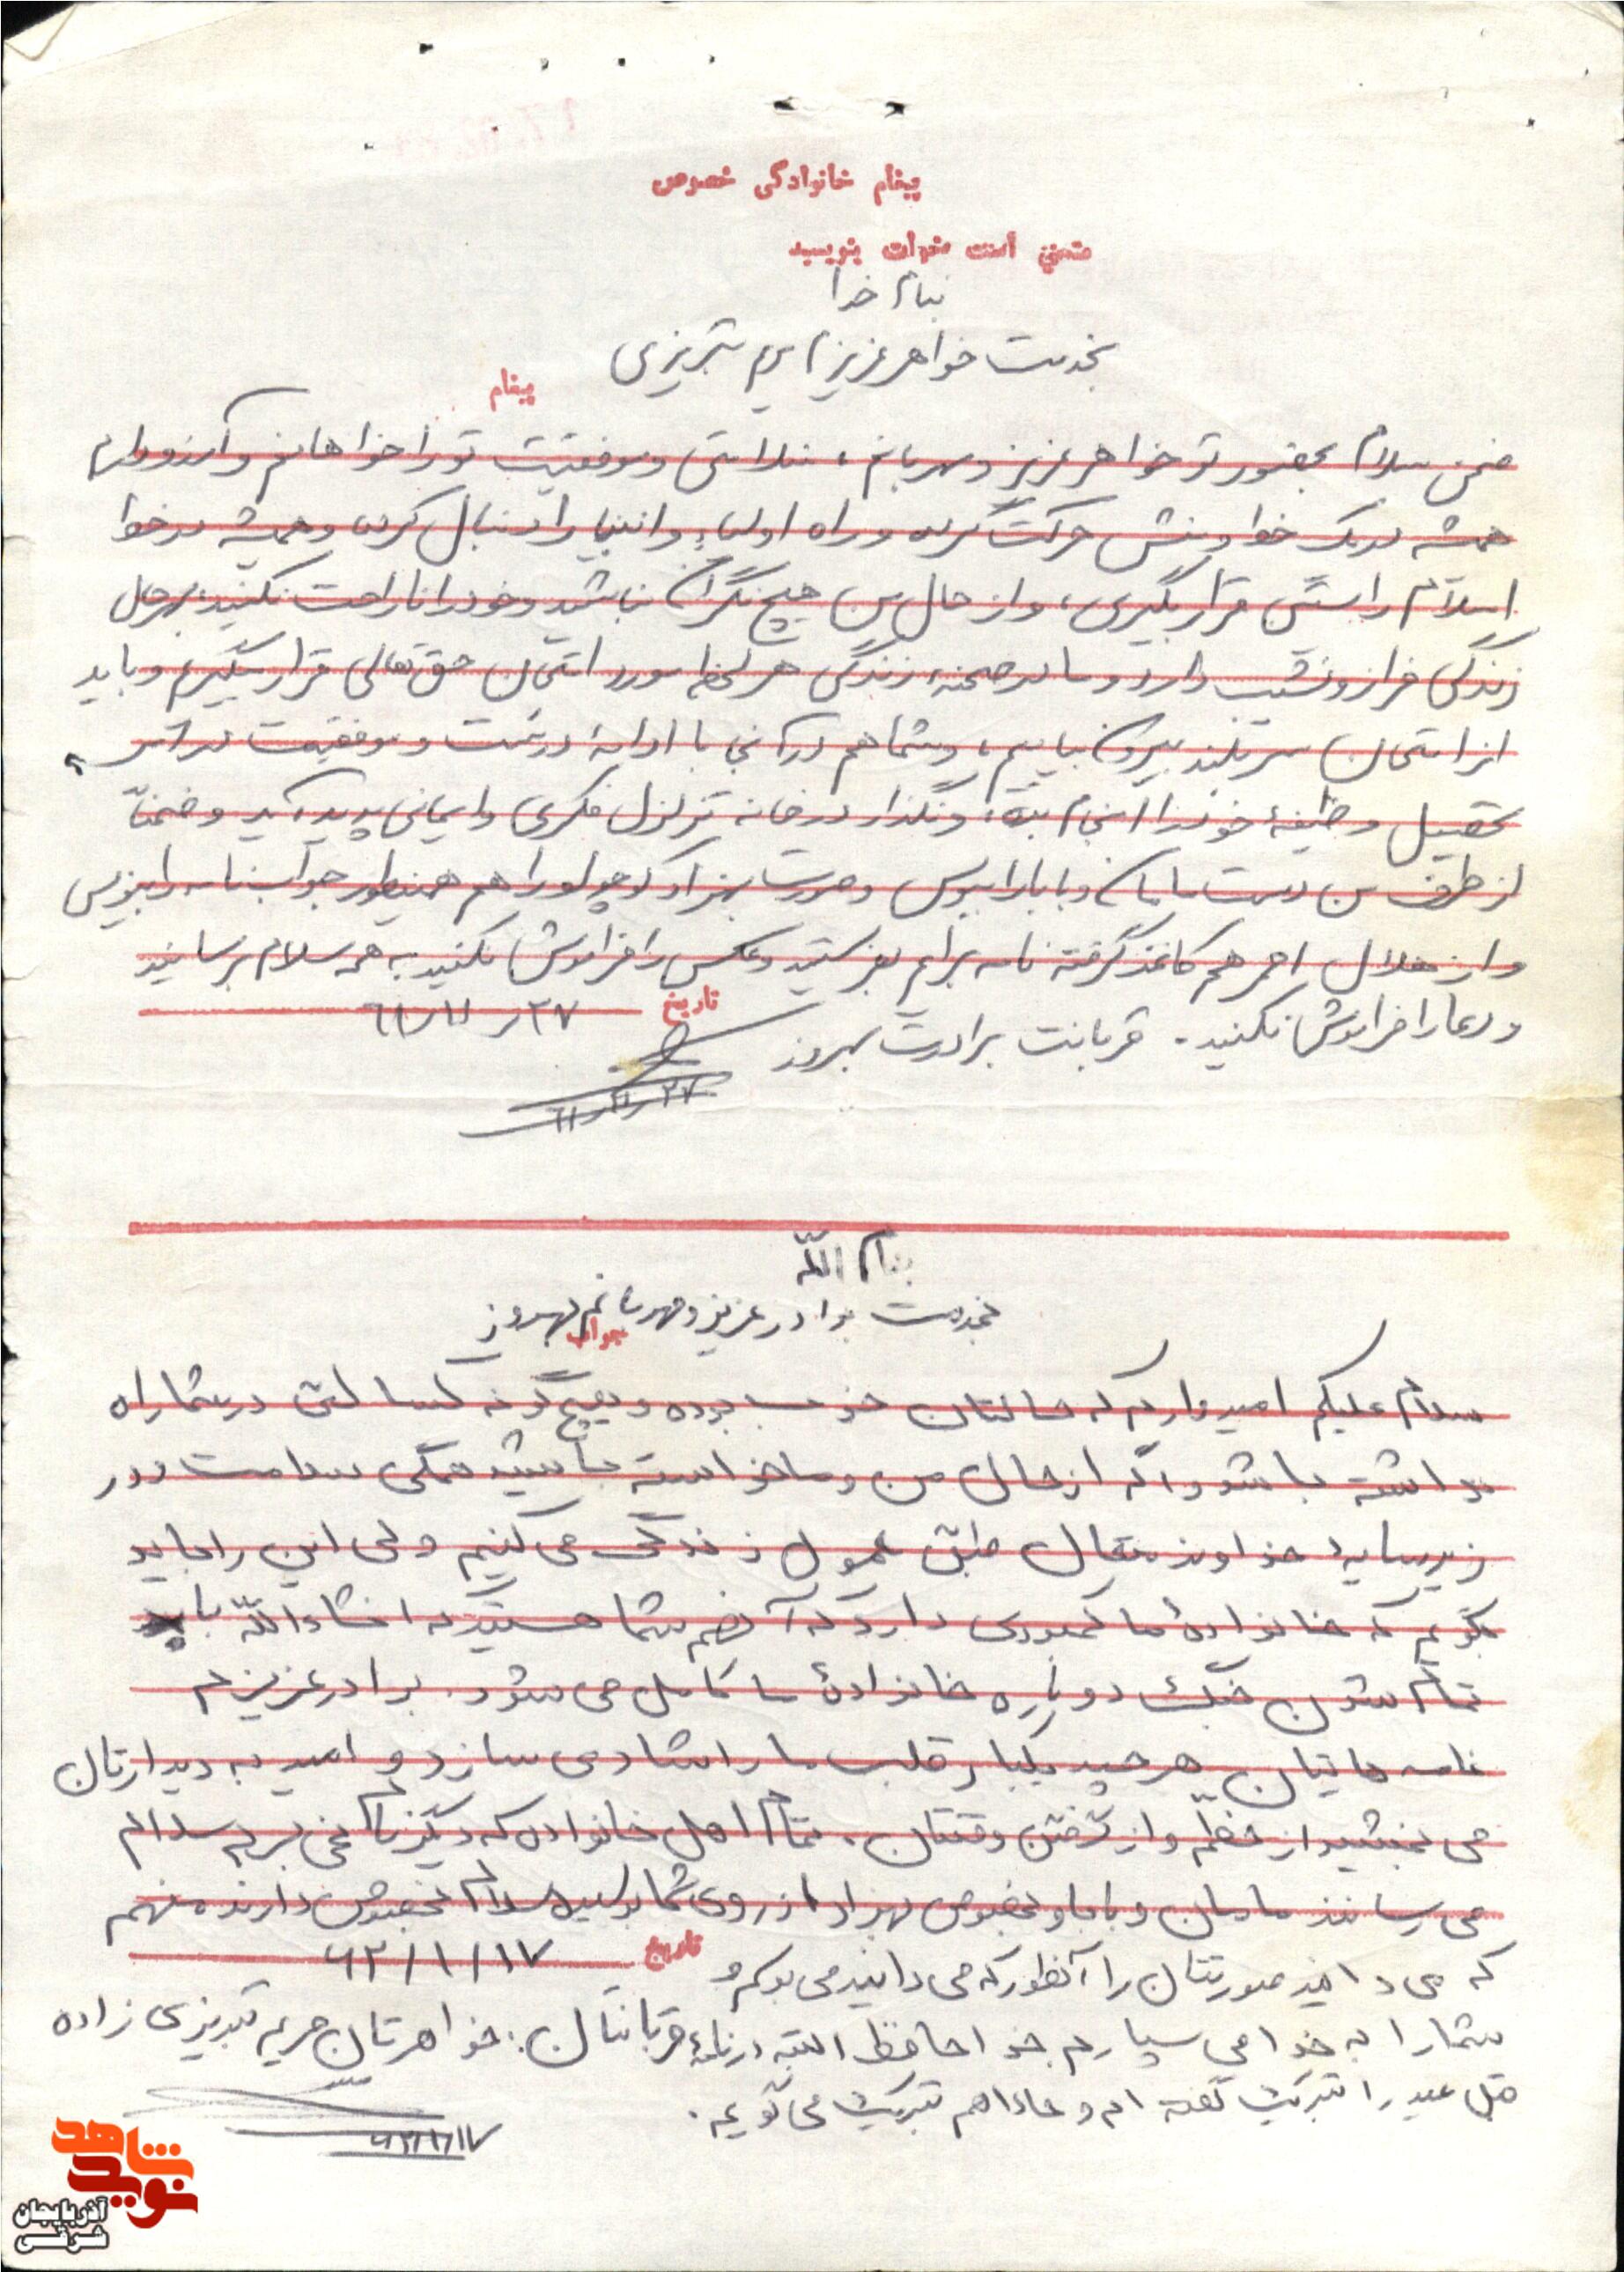 پیغام خانوادگی خصوصی
متمنی است خوانا بنویسید
بنام خدا
بخدمت خواهر عزیزم مریم تبریزی
پیغام
ضمن سلام بحضور تو خواهر عزیز و مهربانم، سلامتی و موفقیت تو را خواهانم و آرزو دارم
همیشه در یک خط و بینش حرکت کرده و راه اولیاء و انبیا را دنبال کرده و همیشه در خط
اسلام راستین قرار بگیری، و از حال من هیچ نگران نباشید و خود را ناراحت نکنید، بهرحال
زندگی فراز و نشیب دارد و ما در صحنه زندگی هر لحظه مورد امتحان حق تعالی قرار میگیریم و باید
از امتحان سربلند بیرون بیاییم، و شما هم در آنجا با ادامهٔ درست و موفقیت در امر
تحصیل وظیفهٔ خود را انجام بده، و نگذار در خانه تزلزل فکری و ایمانی پدید آید و ضمناً
از طرف من دست مامان و بابا را ببوس و صورت بهزاد کوچولو را هم همینطور جواب نامه را بنویس
و از هلال احمر هم کاغذ گرفته نامه برایم بفرستید و عکس را فراموش نکنید به همه سلام برسانید
تاریخ ۶۱/۱۱/۲۷
و دعا را فراموش نکنید. قربانت برادرت بهروز
۶۱/۱۱/۲۷
بنام الله
بخدمت برادر عزیز و مهربانم بهروز
جواب
سلام علیکم امیدوارم که حالتان خوب بوده و هیچ گونه کسالتی در شما راه
نداشته باشد و اگر از حال من و ما خواسته باشید همگی سلامت و در
زیر سایه خداوند متعال طبق معمول زندگی می کنیم ولی این را باید
بگویم که خانواده ما کمبودی دارد که آنهم شما هستید که انشاءالله با
تمام شدن جنگ دوباره خانوادهٔ ما کامل می شود. برادر عزیزم
نامه هایتان هر چند یکبار قلب ما را شاد می سازد و امید به دیدارتان
می بخشید از خطم و از گرفتن وقتتان. تمام اهل خانواده که دیگر نام نمی برم سلام
می رسانند مامان و بابا و بخصوص بهزاد از روی شما بوسیده سلام مخصوص دارند. منهم
تاریخ ۶۲/۱/۱۷
که می دانید صورتتان را آنطور که می دانید می بوسم و
شما را به خدا می سپارم خداحافظ البته در نامهٔ قربانتان: خواهرتان مریم تبریزی زاده
قبل عید را تبریک گفته ام و حالا هم تبریک می گویم.
۶۲/۱/۱۷
نوید شاهد
آذربایجان
شرقی